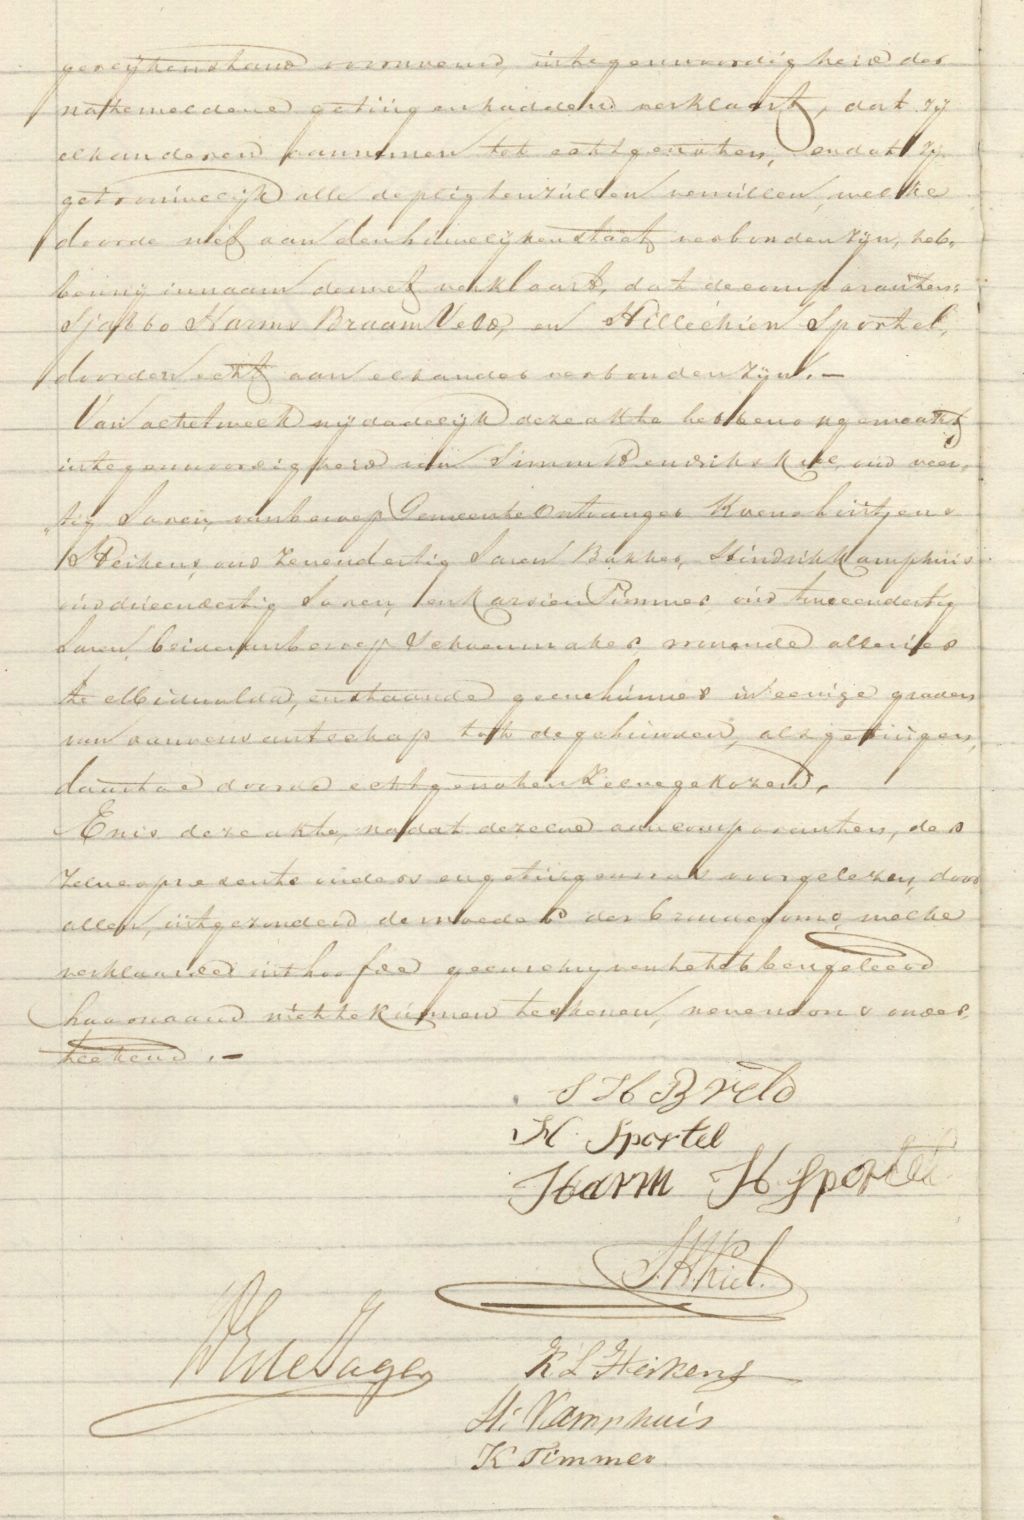 gerlijken stand vorenvermeld, in tegenwoordigheid der
natemeldene getuigen hadden verklaart, dat zij
elkanderen aannemen tot echtgenoten, en dat zij
getrouwelijk alle de pligten zullen vervullen, welke
door de wet aan den huwelijken staat verbonden zijn, heb-
ben wij in naam der wet verklaart, dat de comparanten:
Sjabbo Harms Braam Veld, en Hillechien Sportel,
door den echt aan elkander verbonden zijn. —
Van al hetwelk wij dadelijk deze akte hebben opgemaakt
in tegenwoordigheid van Simon Hendriks Kiel, oud veer-
tig Jaren, van beroep Gemeente Ontvanger Koene Luitjens
Heikens, oud zevendertig Jaren Bakker, Hindrik Kamphuis
oud drieendertig Jaren, en Karsien Timmer, oud tweeendertig
Jaren, beiden van beroep Schoenmaker, wonende allen
te Midwolda, en staande geene hunner in eenige graden
van aanverwantschap tot de gehuwden, als getuigen,
daartoe door de echtgenoten zelve gekozen.
En is deze akte, nadat dezelve aan comparanten, der
zelver presente ouders en getuigen was voorgelezen, door
allen, uitgezonderd de moeder des bruidegoms, welke
verklaarde uit hoofde geen schrijven te hebben geleerd
haar naam niet te kunnen tekenen, nevens ons onder-
teekend. —
S H B Veld
H Sportel
Harm H Sportel
S. H. Kiel.
de Jager
K L Heikens
Hi Kamphuis
K Timmer